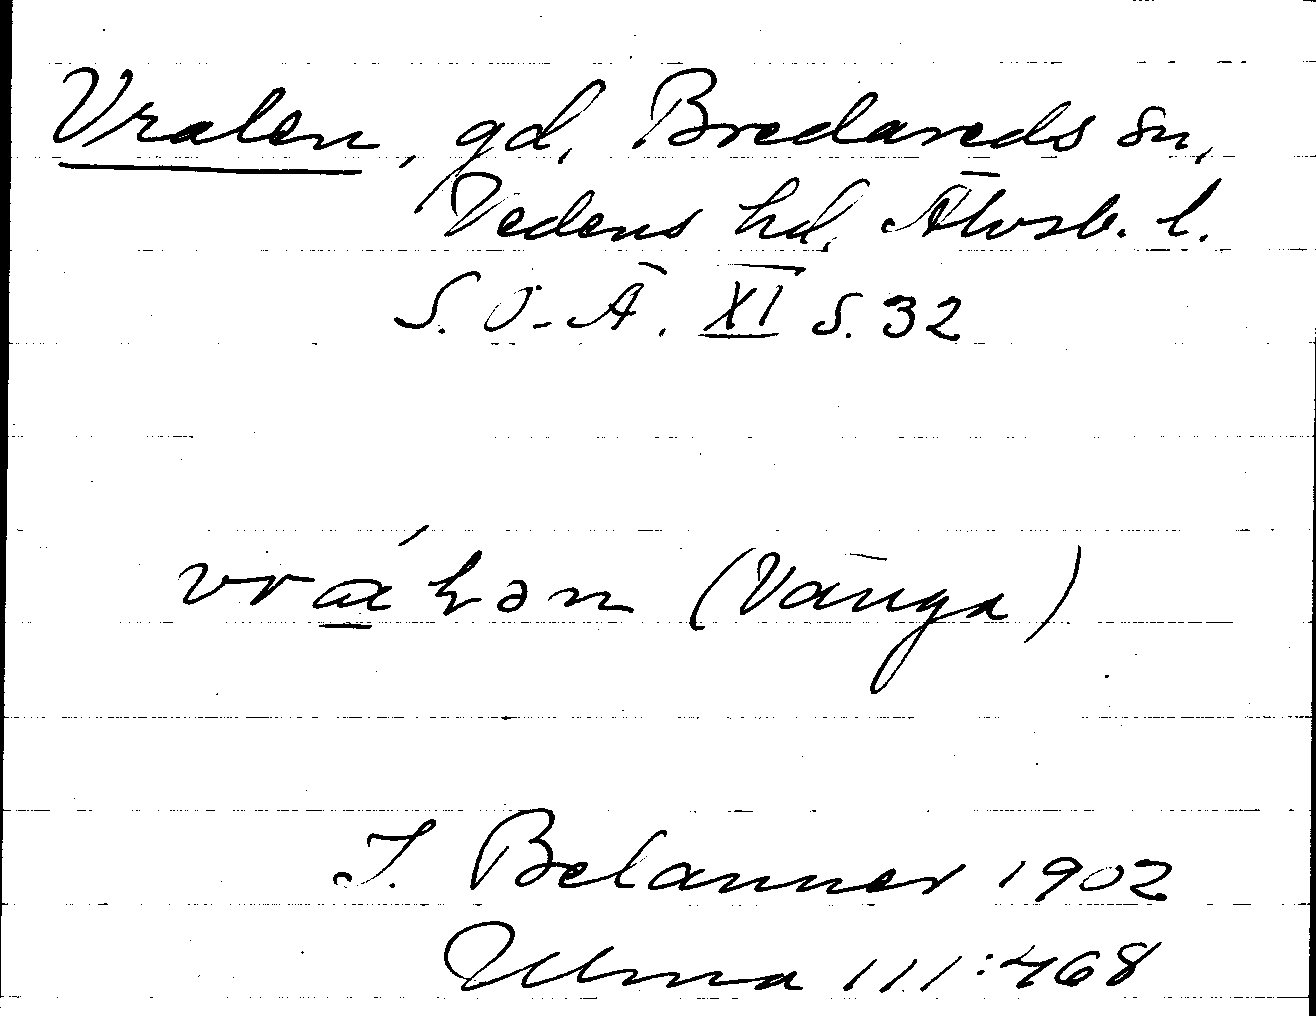 Vralen, gd, Bredareds sn,
Vedens hd, Älvsb. l.
S. O-Ä. XI s. 32
(Vänga)
J. Belanner 1902
Ulma 111:468